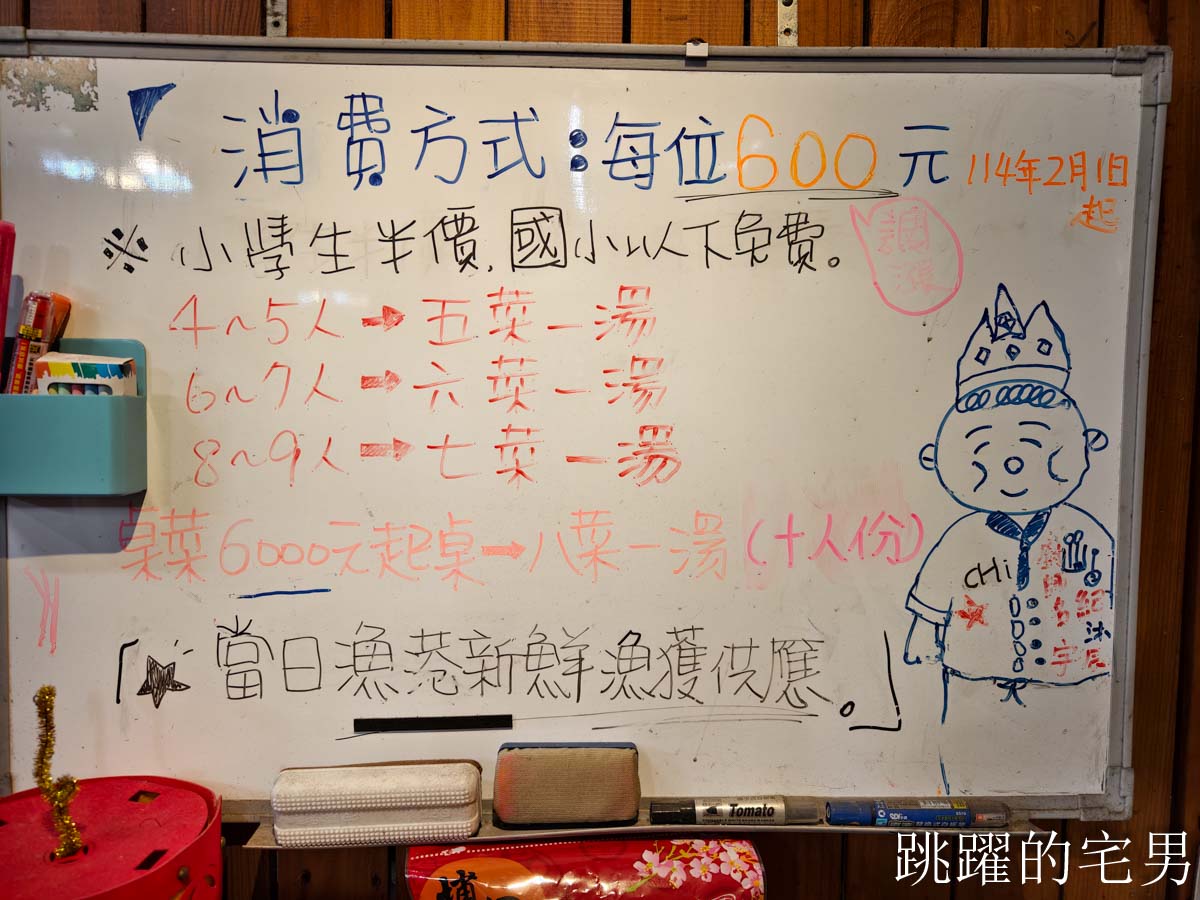 消費方式:每位600元
114年2月1日
起
※小學生半價,國小以下免費。
調
漲
4~5人➡五菜一湯
6~7人➡六菜一湯
8~9人➡七菜一湯
桌菜6000元起桌➡八菜一湯(十人份)
CHi
「★當日漁港新鮮漁獲供應。」
Tomato
跳躍的宅男